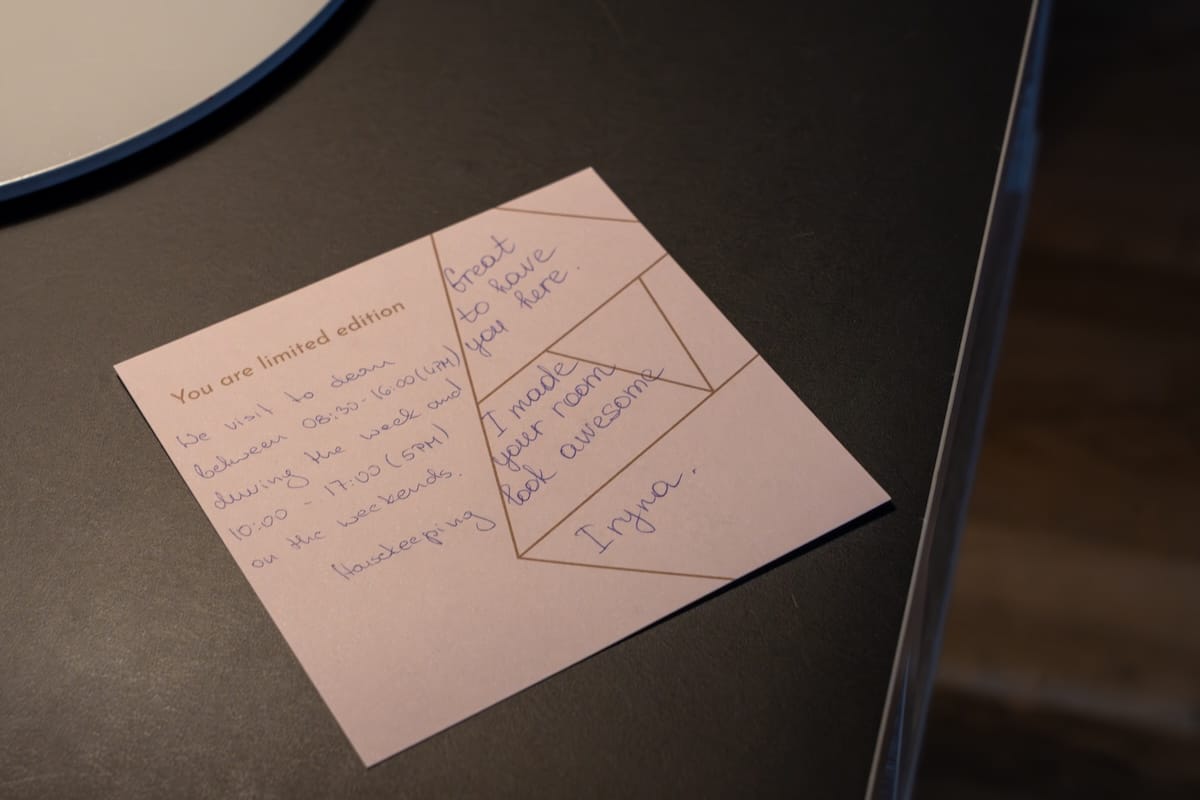 You are limited edition
We visit to clean
between 08:30-16:00 (4PM)
during the week and
10:00 - 17:00 (5PM)
on the weekends.
Housekeeping
Great
to have
you here.
I made
your room
look awesome
Iryna.